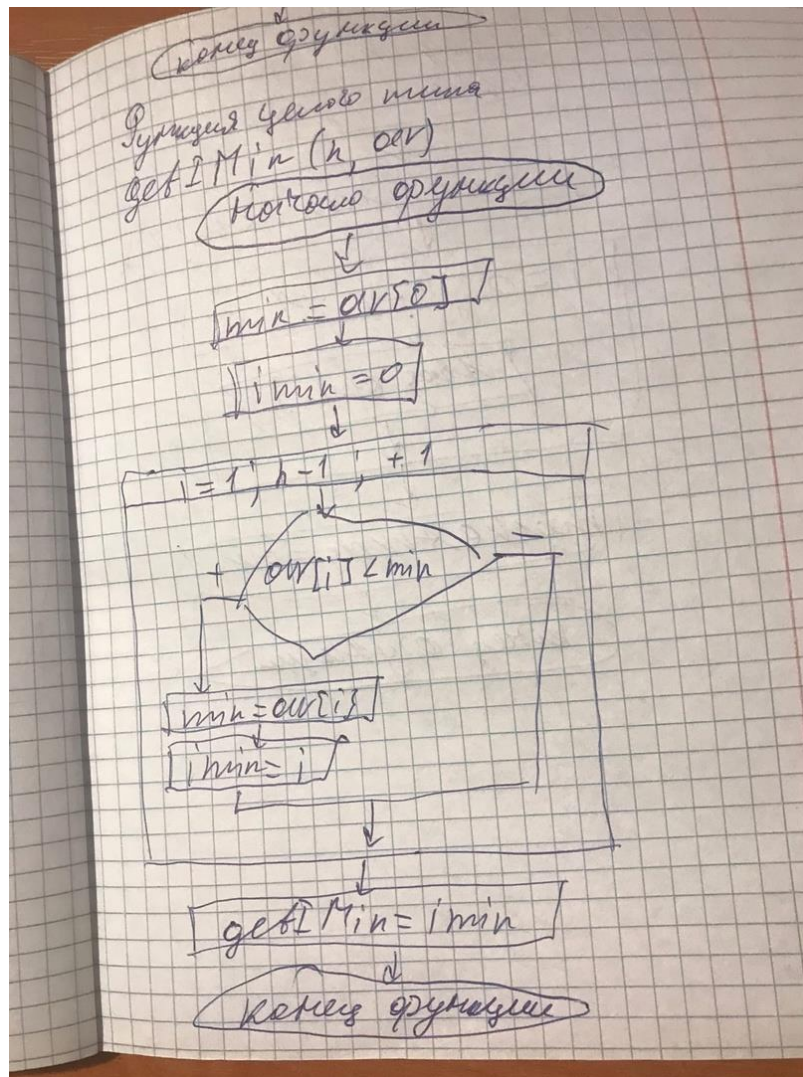 конец функции
Функция целого типа
getIMin (n, ar)
начало функции
min = ar[0]
imin = 0
i = 1; n-1; +1
+ ar[i] < min -
min = ar[i]
imin = i
getIMin = imin
конец функции